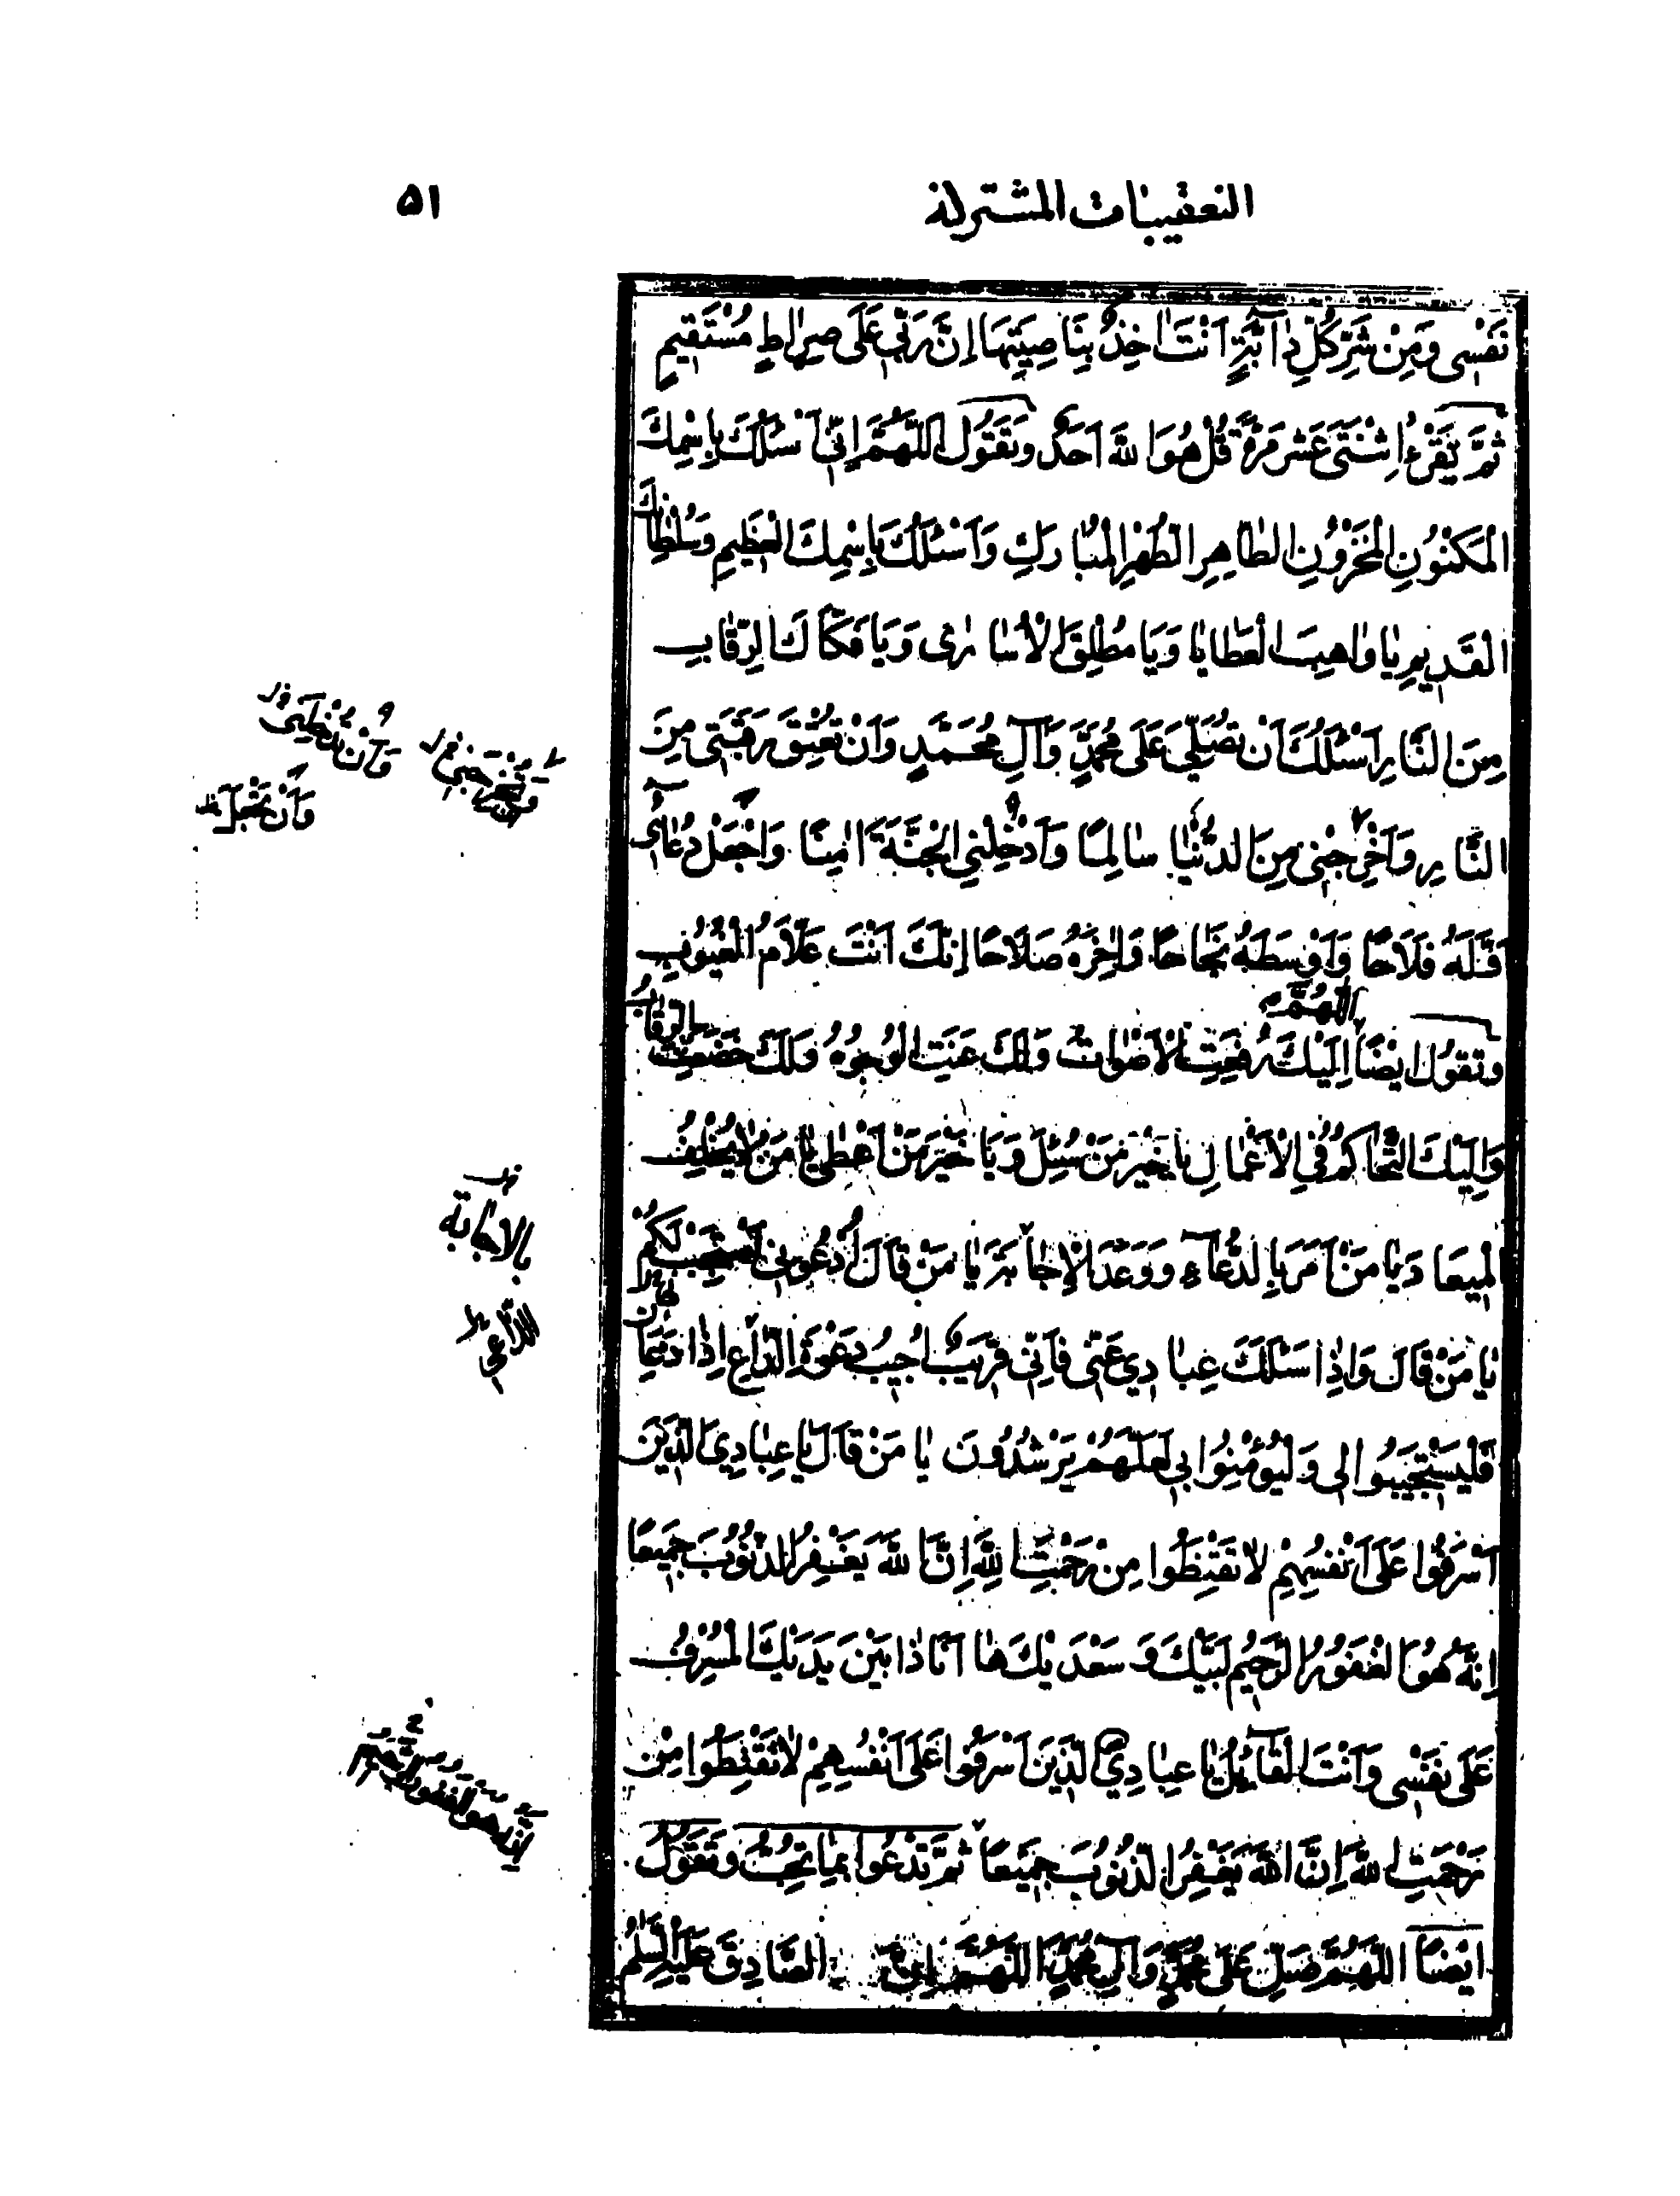 التعقیبات المشترکة
۵۱
نَفْسِی وَمِنْ شَرِّ کُلِّ دٰآبَّةٍ اَنْتَ اٰخِذٌ بِنَاصِیَتِهَا اِنَّ رَبِّی عَلَی صِرٰاطٍ مُسْتَقِیمٍ
ثُمَّ تَقْرَءُ اِثْنَتَیْ عَشَرَ مَرَّةً قُلْ هُوَ اللّٰهُ اَحَدٌ وَتَقُولُ اَللّٰهُمَّ اِنِّی اَسْئَلُکَ بِاِسْمِکَ
الْمَکْنُونِ الْمَخْزُونِ الطّٰاهِرِ الطُّهْرِ الْمُبٰارَکِ وَاَسْئَلُکَ بِاِسْمِکَ الْعَظِیمِ وَسُلْطٰانِکَ
الْقَدِیمِ یٰا وٰاهِبَ الْعَطٰایٰا وَیَا مُطْلِقَ الْاُسٰارٰی وَیَا فَکّٰاکَ الرِّقٰابِ
مِنَ النّٰارِ اَسْئَلُکَ اَنْ تُصَلِّیَ عَلَی مُحَمَّدٍ وَآلِ مُحَمَّدٍ وَاَنْ تُعْتِقَ رَقَبَتِی مِنَ
النّٰارِ وَاَخْرِجْنِی مِنَ الدُّنْیٰا سٰالِمًا وَاَدْخِلْنِی الْجَنَّةَ اٰمِنًا وَاجْعَلْ دُعٰائِی
اَوَّلَهُ فَلَاحًا وَاَوْسَطَهُ نَجٰاحًا وَاٰخِرَهُ صَلَاحًا اِنَّکَ اَنْتَ عَلّٰامُ الْغُیُوبِ
وَتَقُولُ اَیْضًا اَللّٰهُمَّ اِلَیْکَ رُفِعَتِ الْاَصْوٰاتُ وَلَکَ عَنَتِ الْوُجُوهُ وَلَکَ خَضَعَتِ الرِّقٰابُ
وَاِلَیْکَ التَّحٰاکُمُ فِی الْاَعْمٰالِ یٰا خَیْرَ مَنْ سُئِلَ وَیَا خَیْرَ مَنْ اَعْطٰی یٰا مَنْ لٰا یُخْلِفُ
الْمِیعٰادَ یٰا مَنْ اَمَرَ بِالدُّعٰآءِ وَوَعَدَ الْاِجٰابَةَ یٰا مَنْ قَالَ اُدْعُونِی اَسْتَجِبْ لَکُمْ
یٰا مَنْ قَالَ وَاِذٰا سَئَلَکَ عِبٰادِی عَنِّی فَاِنِّی قَرِیبٌ اُجِیبُ دَعْوَةَ الدّٰاعِ اِذٰا دَعٰانِ
فَلْیَسْتَجِیبُوا لِی وَلْیُؤْمِنُوا بِی لَعَلَّهُمْ یَرْشُدُونَ یٰا مَنْ قَالَ یٰا عِبٰادِیَ الَّذِینَ
اَسْرَفُوا عَلَی اَنْفُسِهِمْ لٰا تَقْنَطُوا مِنْ رَحْمَتِ اللّٰهِ اِنَّ اللّٰهَ یَغْفِرُ الذُّنُوبَ جَمِیعًا
اِنَّهُ هُوَ الْغَفُورُ الرَّحِیمُ لَبَّیْکَ وَ سَعْدَیْکَ هٰا اَنَا ذٰا بَیْنَ یَدَیْکَ الْمُسْرِفُ
عَلَی نَفْسِی وَاَنْتَ الْقٰائِلُ یٰا عِبٰادِیَ الَّذِینَ اَسْرَفُوا عَلَی اَنْفُسِهِمْ لٰا تَقْنَطُوا مِنْ
رَحْمَتِ اللّٰهِ اِنَّ اللّٰهَ یَغْفِرُ الذُّنُوبَ جَمِیعًا ثُمَّ تَدْعُوا بِمٰا تُحِبُّ وَتَقُولُ
اَیْضًا اَللّٰهُمَّ صَلِّ عَلَی مُحَمَّدٍ وَآلِ مُحَمَّدٍ اَللّٰهُمَّ اِنَّ الصّٰادِقَ عَلَیْهِ السَّلٰمُ
وَاَنْ تُخْرِجَنِی
وَاَنْ تُدْخِلَنِی
وَاَنْ تَجْعَلَ
بالاجابة
الدّاعی
اِنَّهُ هُوَ الْغَفُورُ الرَّحِیمُ